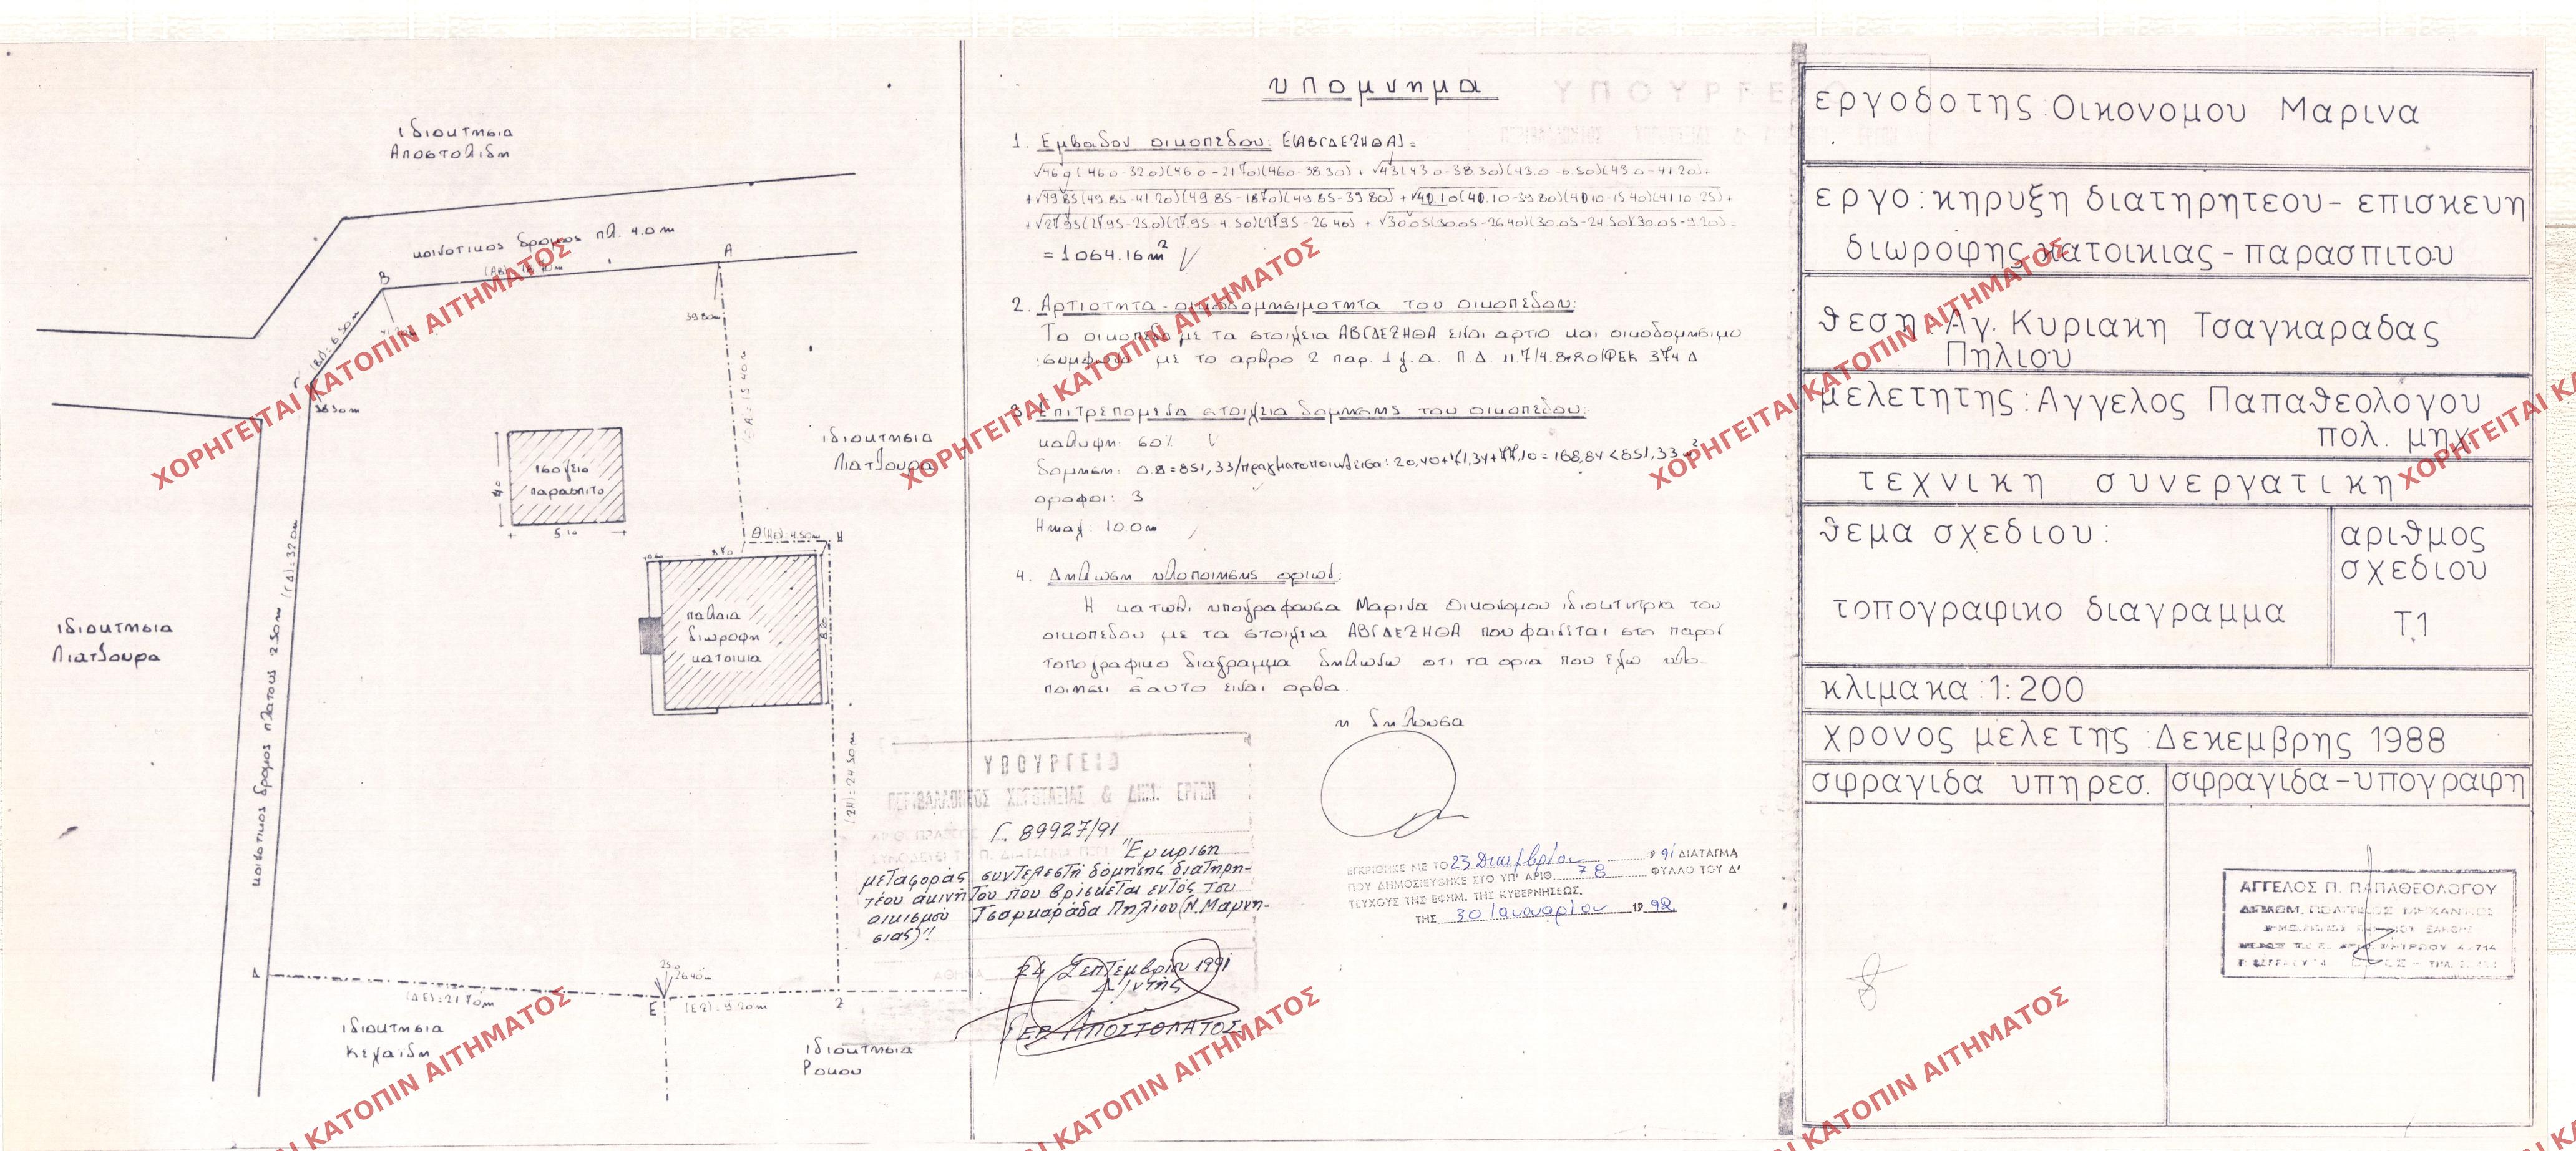 ιδιοκτησια
Αποστολιδη
κοινοτικος δρομος πλ. 4.0 m
Β
Α
(ΒΓ): 6.50m
38.30m
39.80m
ιδιοκτησια
Λιατζουρα
ισογειο
παρασπιτο
5.10
Θ(ΗΘ): 4.50m Η
8.70
παλαια
διωροφη
κατοικια
ιδιοκτησια
Λιατζουρα
κοινοτικος δρομος πλατους 2.50m (ΓΔ): 32.0m
(ΖΗ): 24.50m
Δ
(ΔΕ): 21.70m
25.0
26.40m
Ε
(ΕΖ): 9.20m
Ζ
ιδιοκτησια
Κεχαϊδη
ιδιοκτησια
Ρουου
υπομνημα
1. Εμβαδον οικοπεδου: Ε(ΑΒΓΔΕΖΗΘΑ) =
= 1064.16 m²
2. Αρτιοτητα - οικοδομησιμοτητα του οικοπεδου:
Το οικοπεδο με τα στοιχεια ΑΒΓΔΕΖΗΘΑ ειναι αρτιο και οικοδομησιμο
συμφωνα με το αρθρο 2 παρ. 1
3. Επιτρεπομενα στοιχεια δομησης του οικοπεδου:
καλυψη: 60%
δομηση: 0.8 = 851,33/πραγματοποιηθεισα: 20,40+71,34+77,10 = 168,84 < 851,33 m²
οροφοι: 3
Ημαχ: 10.0m
4. Δηλωση υλοποιησης οριων:
Η κατωθι υπογραφουσα Μαρινα Οικονομου ιδιοκτητρια του
οικοπεδου με τα στοιχεια ΑΒΓΔΕΖΗΘΑ που φαινεται στο παρον
τοπογραφικο διαγραμμα δηλωνω οτι τα ορια που εχω υλο-
ποιησει σ' αυτο ειναι ορθα.
η δηλουσα
ΥΠΟΥΡΓΕΙΟ
ΠΕΡΙΒΑΛΛΟΝΤΟΣ ΧΩΡΟΤΑΞΙΑΣ & ΔΗΜ. ΕΡΓΩΝ
Γ. 89927/91
"Έγκριση
μεταφοράς συντελεστή δόμησης διατηρη-
τέου ακινήτου που βρίσκεται εντός του
οικισμού Τσαγκαράδα Πηλίου (Ν. Μαγνη-
σίας)"
24 Σεπτεμβρίου 1991
ΓΕΡ. ΑΠΟΣΤΟΛΑΤΟΣ
ΕΓΚΡΙΘΗΚΕ ΜΕ ΤΟ 23 Δεκεμβρίου 1991 ΔΙΑΤΑΓΜΑ
ΠΟΥ ΔΗΜΟΣΙΕΥΘΗΚΕ ΣΤΟ ΥΠ' ΑΡΙΘ. 78 ΦΥΛΛΟ ΤΟΥ Δ'
ΤΕΥΧΟΥΣ ΤΗΣ ΕΦΗΜ. ΤΗΣ ΚΥΒΕΡΝΗΣΕΩΣ.
ΤΗΣ 30 Ιανουαρίου 1992
εργοδοτης: Οικονομου Μαρινα
εργο: κηρυξη διατηρητεου - επισκευη
διωροφης κατοικιας - παρασπιτου
θεση: Αγ. Κυριακη Τσαγκαραδας
Πηλιου
μελετητης: Αγγελος Παπαθεολογου
πολ. μηχ.
τεχνικη συνεργατικη
θεμα σχεδιου:
τοπογραφικο διαγραμμα
αριθμος
σχεδιου
Τ.1
κλιμακα: 1:200
χρονος μελετης: Δεκεμβρης 1988
σφραγιδα υπηρεσ.
σφραγιδα-υπογραφη
ΑΓΓΕΛΟΣ Π. ΠΑΠΑΘΕΟΛΟΓΟΥ
ΔΙΠΛΩΜ. ΠΟΛΙΤΙΚΟΣ ΜΗΧΑΝΙΚΟΣ
ΧΟΡΗΓΕΙΤΑΙ ΚΑΤΟΠΙΝ ΑΙΤΗΜΑΤΟΣ
ΧΟΡΗΓΕΙΤΑΙ ΚΑΤΟΠΙΝ ΑΙΤΗΜΑΤΟΣ
ΧΟΡΗΓΕΙΤΑΙ ΚΑΤΟΠΙΝ ΑΙΤΗΜΑΤΟΣ
ΧΟΡΗΓΕΙΤΑΙ ΚΑ
ΚΑΤΟΠΙΝ ΑΙΤΗΜΑΤΟΣ
ΚΑΤΟΠΙΝ ΑΙΤΗΜΑΤΟΣ
ΚΑΤΟΠΙΝ ΑΙΤΗΜΑΤΟΣ